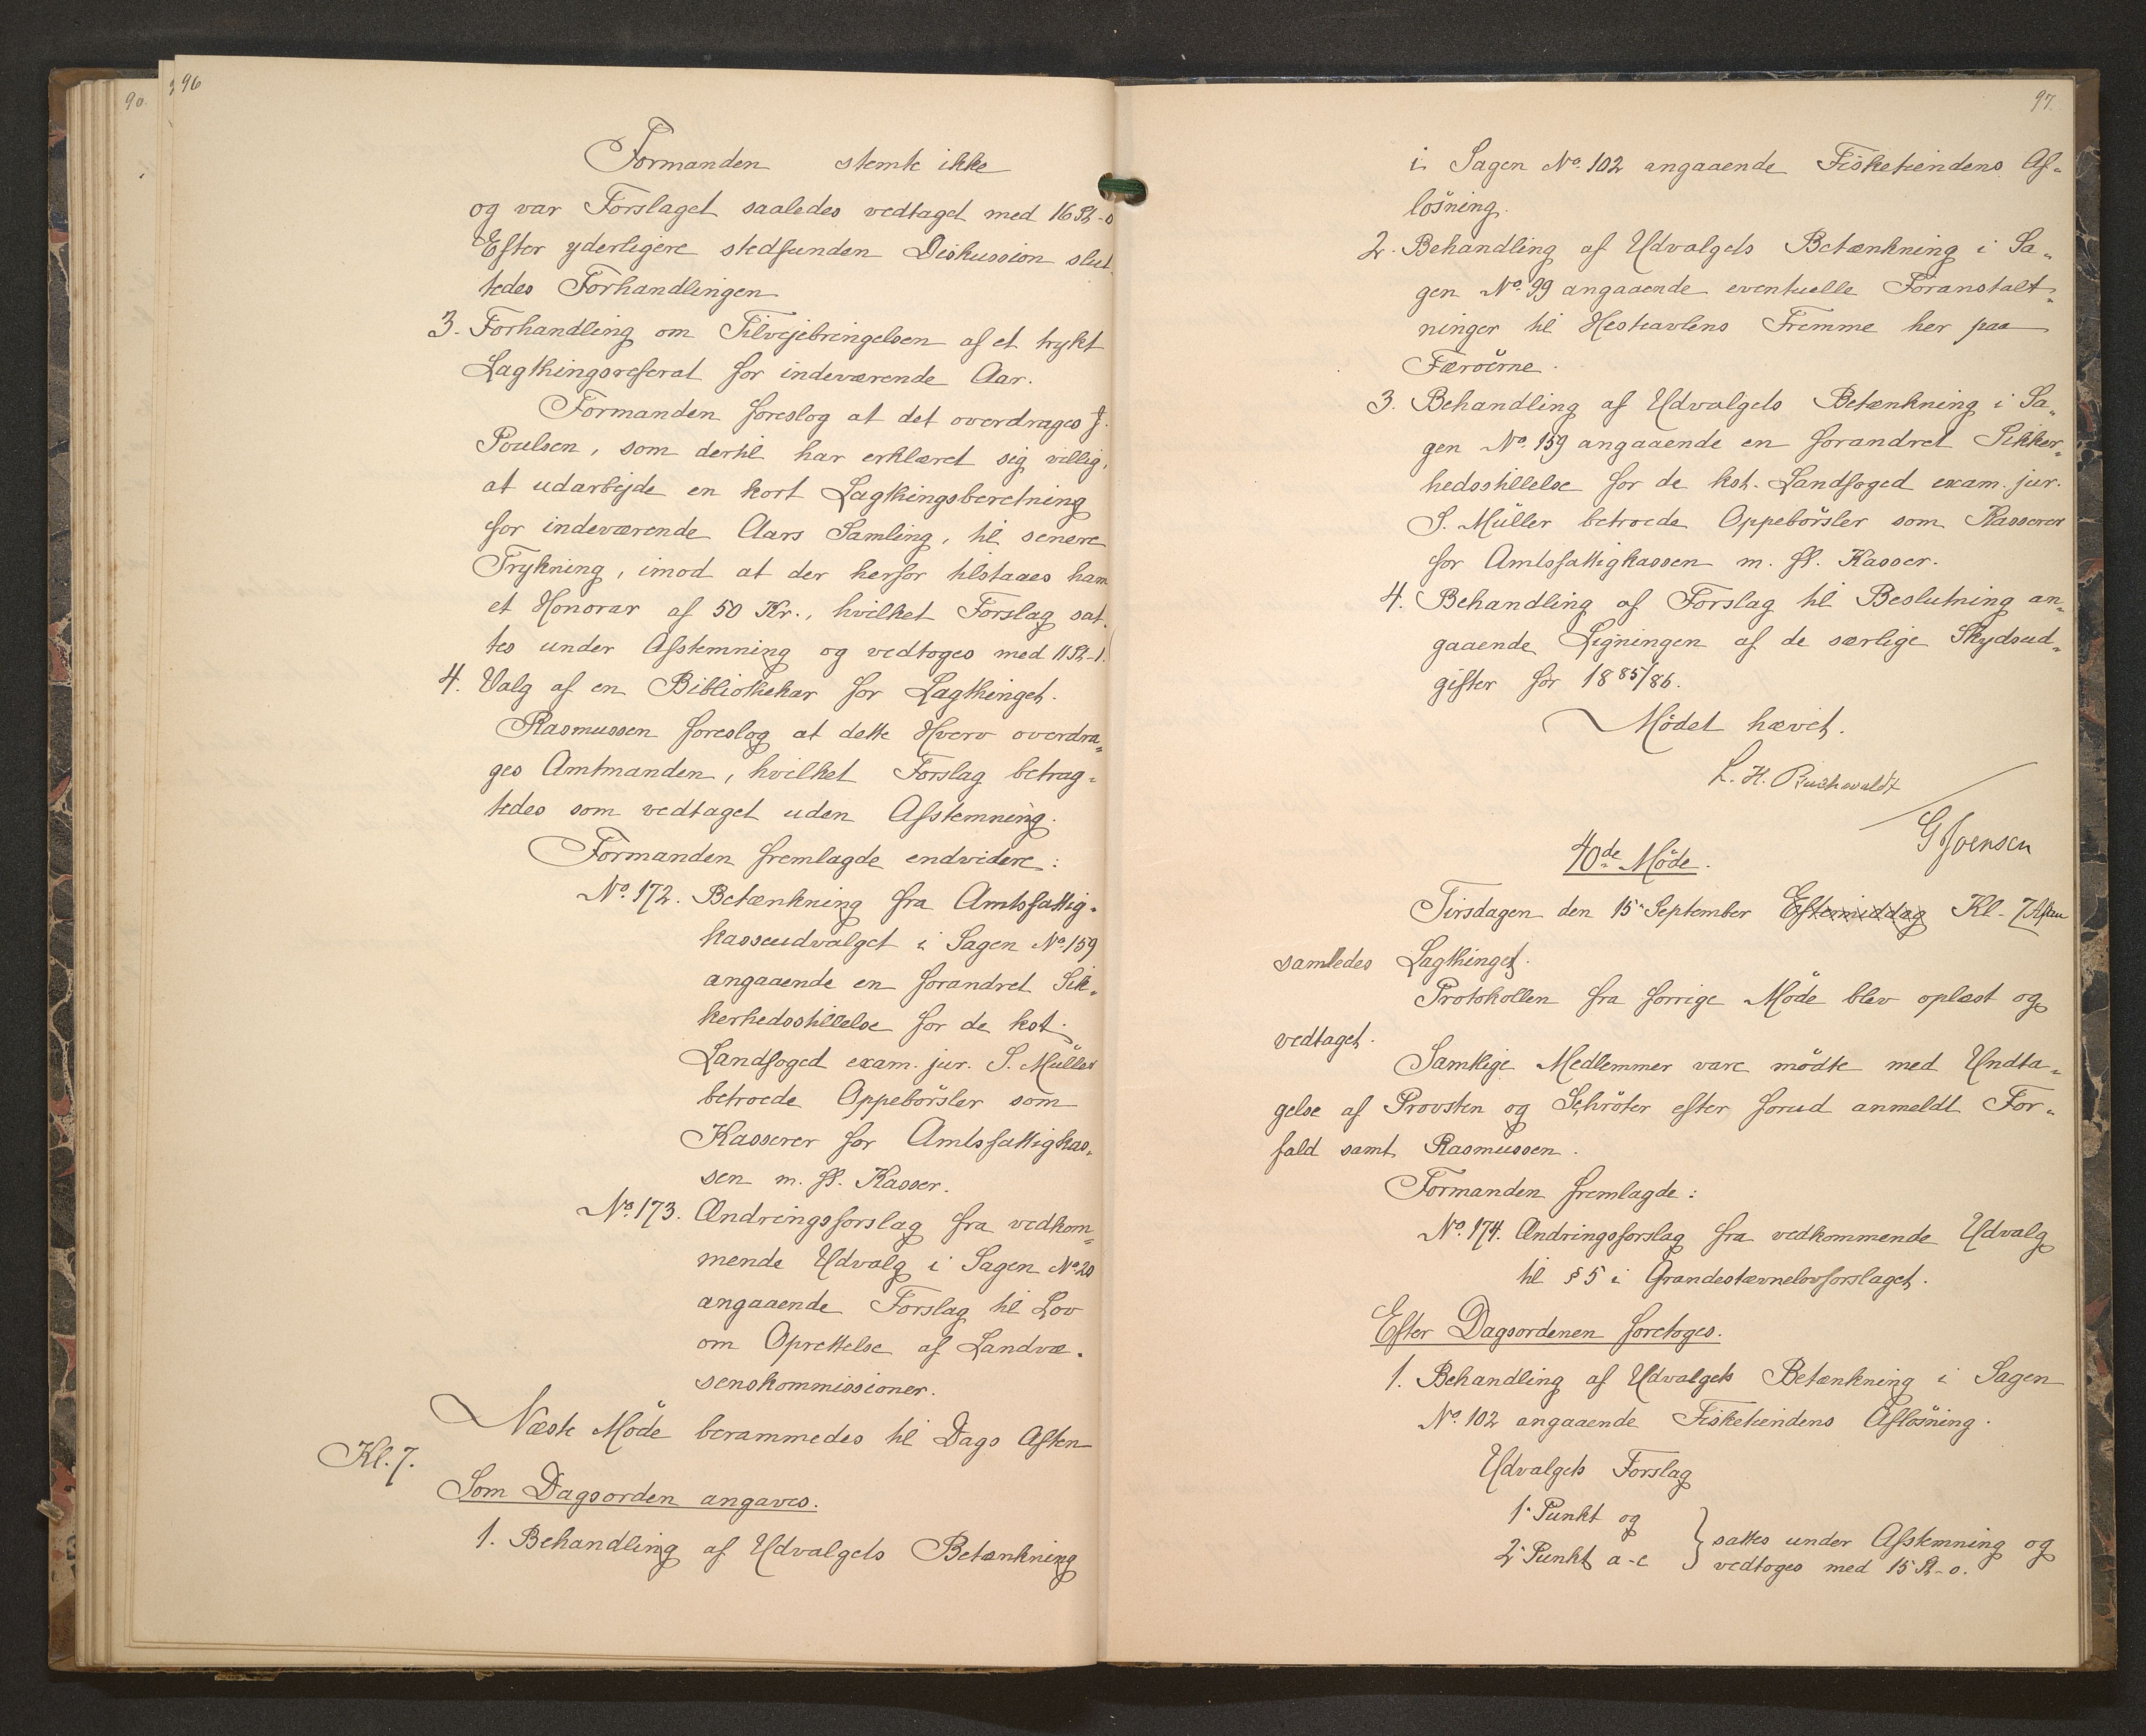 96
Formanden stemte ikke
og var Forslaget saaledes vedtaget med 16 St-0
Efter yderligere stedfunden Diskussion slut-
tedes Forhandlingen
3. Forhandling om Tilvejebringelsen af et trykt
Lagthingsreferat for indeværende Aar.
Formanden foreslog at det overdrages J.
Poulsen, som dertil har erklæret sig villig,
at udarbejde en kort Lagthingsberetning
for indeværende Aars Samling, til senere
Trykning, imod at der herfor tilstaaes ham
et Honorar af 50 Kr., hvilket Forslag sat-
tes under Afstemning og vedtoges med 11 St-1.
4. Valg af en Bibliothekar for Lagthinget.
Rasmussen foreslog at dette Hverv overdra-
ges Amtmanden, hvilket Forslag betrag-
tedes som vedtaget uden Afstemning.
Formanden fremlagde endvidere:
No. 172. Betænkning fra Amtsfattig-
kasseudvalget i Sagen No. 159
angaaende en forandret Sik-
kerhedsstillelse for de kst.
Landfoged exam. jur. S. Müller
betroede Oppebörsler som
Kasserer for Amtsfattigkas-
sen m. fl. Kasser.
No. 173. Ændringsforslag fra vedkom-
mende Udvalg i Sagen No. 20
angaaende Forslag til Lov
om Oprettelse af Landvæ-
senskommissioner.
Næste Möde berammedes til Dags Aften
Kl. 7.
Som Dagsorden angaves.
1. Behandling af Udvalgets Betænkning
90.
97.
i Sagen No. 102 angaaende Fisketiendens Af-
lösning.
2. Behandling af Udvalgets Betænkning i Sa-
gen No. 99 angaaende eventuelle Foranstalt-
ninger til Hesteavlens Fremme her paa
Færöerne.
3. Behandling af Udvalgets Betænkning i Sa-
gen No. 159 angaaende en forandret Sikker-
hedsstillelse for de kst. Landfoged exam. jur.
S. Müller betroede Oppebörsler som Kasserer
for Amtsfattigkassen m. fl. Kasser.
4. Behandling af Forslag til Beslutning an-
gaaende Ligningen af de særlige Skydsud-
gifter for 1885/86.
Mödet hævet.
L. H. Buchwaldt
G Joensen
40de Möde.
Tirsdagen den 15. September Eftermiddag Kl. 7 Aften
samledes Lagthinget.
Protokollen fra forrige Möde blev oplæst og
vedtaget.
Samtlige Medlemmer vare mödte med Undta-
gelse af Provsten og Schröter efter forud anmeldt For-
fald samt Rasmussen.
Formanden fremlagde:
No. 174. Ændringsforslag fra vedkommende Udvalg
til § 5 i Grandestævnelovforslaget.
Efter Dagsordenen foretoges.
1. Behandling af Udvalgets Betænkning i Sagen
No. 102 angaaende Fisketiendens Aflösning.
Udvalgets Forslag
1. Punkt og
2. Punkt a-c } sattes under Afstemning og
vedtoges med 15 St-0.